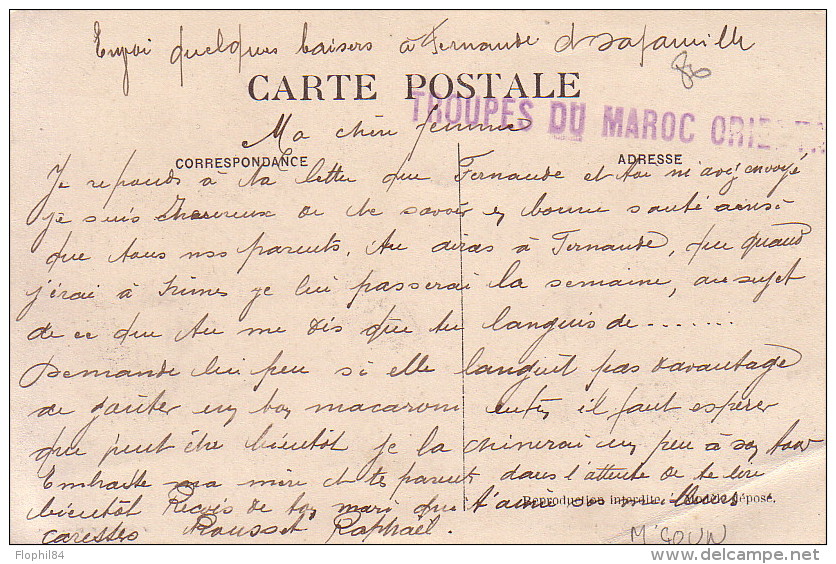 Envoi quelques baisers à Fernande et sa famille
CARTE POSTALE
TROUPES DU MAROC ORIENTA
Ma chère femme
CORRESPONDANCE
ADRESSE
Je reponds à ta lettre que Fernande et toi m'avez envoyé
je suis heureux de te savoir en bonne santé ainsi
que tous nos parents. Tu diras à Fernande, que quand
j'irai à Nimes je lui passerai la semaine, au sujet
de ce que tu me dis que tu languis de .......
Demande lui peu si elle languit pas davantage
de goûter un bon macaroni enfin il faut espérer
que peut être bientôt je la chinerai un peu à son tour
Embrasse ma mère et te parents dans l'attente de te lire
bientôt Recois de ton mari que t'aime ses meilleures
Reproduction interdite. Modèle déposé.
caresses Rousset Raphaël.
M'GOUN
Flophil84
www.delcampe.net